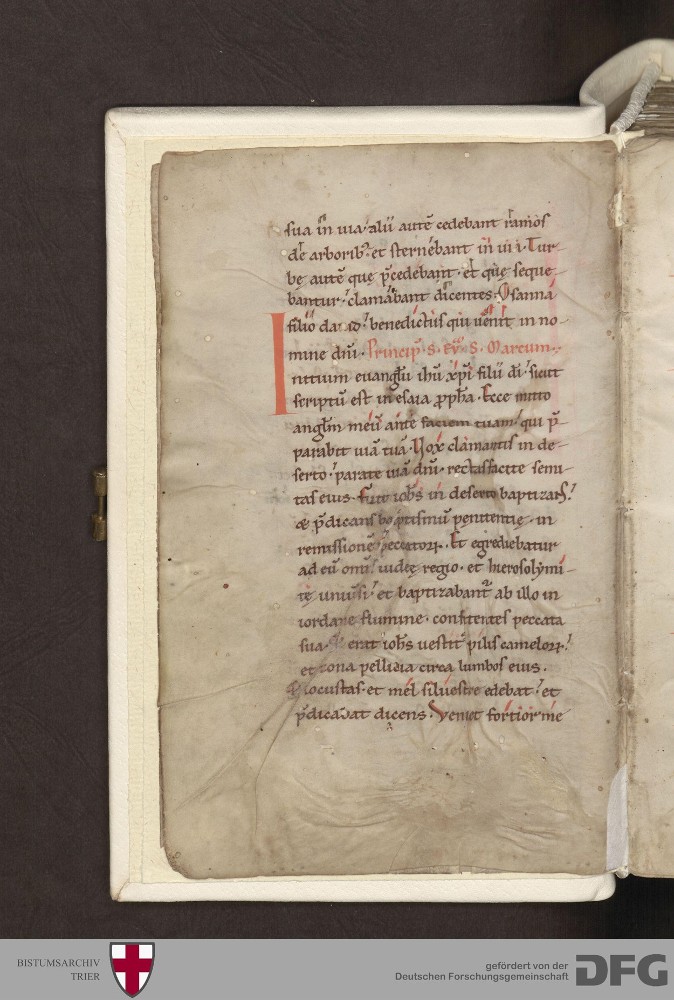 sua in uia · alii autē cedebant ramos
de arborib; et sternebant in ui i · Tur-
bę autē que p̄cedebant · et quę seque-
bantur · clamabant dicentes · Osanna
filio da id · benedictus qui uenit in no-
mine dn̄i · Princip̄ · S · Eṽ · S · Marcum ·
nitium euangl̄ii ihū xp̄i filii dī · sicut
scriptū est in esaia ꝓph̄a · Ecce mitto
anglm̄ meū ante faciem tuam · qui p̄-
parabit uiā tuā · Uox clamantis in de-
serto · parate uiā dn̄i · rectas facite semi-
tas eius · Fuit ioh̄s in deserto baptizans ·
& p̄dicans baptismū pęnitentię · in
remissionē peccatorꝝ · Et egrediebatur
ad eū om̄is iudeę regio · et hierosolymi-
tę uniuersi · et baptizabant᷑ ab illo in
iordane flumine · confitentes peccata
sua · erat ioh̄s uestit᷑ pilis camelorꝝ ·
et zona pellicia circa lumbos eius ·
& locustas · et mel siluestre edebat · et
p̄dicabat dicens · Veniet fortior me
BISTUMSARCHIV
TRIER
gefördert von der
Deutschen Forschungsgemeinschaft
DFG